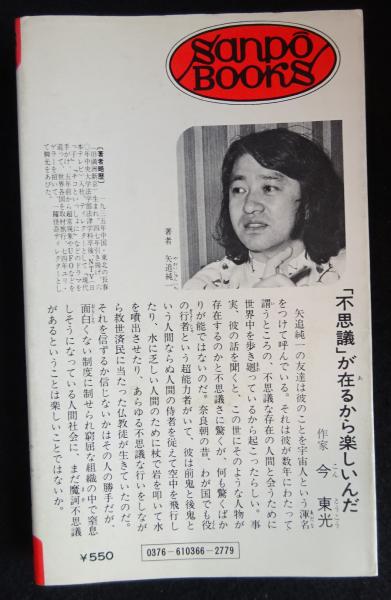 Sanpō
BOOKS
著者 矢追純一
「不思議」が在るから楽しいんだ
作家 今 東光
矢追純一の友達は彼のことを宇宙人という渾名
をつけて呼んでいる。それは彼が数年にわたって
謂うところの、不思議な存在の人間と会うために
世界中を歩き廻っているから起こったらしい。事
実、彼の話を聞くと、この世にそのような人物が
存在するのかと不思議さに驚くが、何も驚くばか
りが能ではないのだ。奈良朝の昔、わが国でも役
の行者という超能力者がいて、彼は前鬼と後鬼と
いう人間ならぬ人間の侍者を従えて空中を飛行し
たり、水に乏しい人間のために杖で岩を叩いて水
を噴出させたり、あらゆる不思議な行いをしなが
ら救世済民に当たった仏教徒が生きていたのだ。
それを信ずるか信じないかはその人の勝手だが、
面白くない制度に制せられ窮屈な組織の中で窒息
しそうになっている人間社会に、まだ魔訶不思議
があるということは楽しいことではないか。
〔著者略歴〕
一九三五年中国・東北の長春
(旧満洲新京)生まれ。四七年引揚げ、六
〇年中央大学法学部法律学科卒後、NTV(日
て脚光をあびた。
¥550
0376-610366-2779